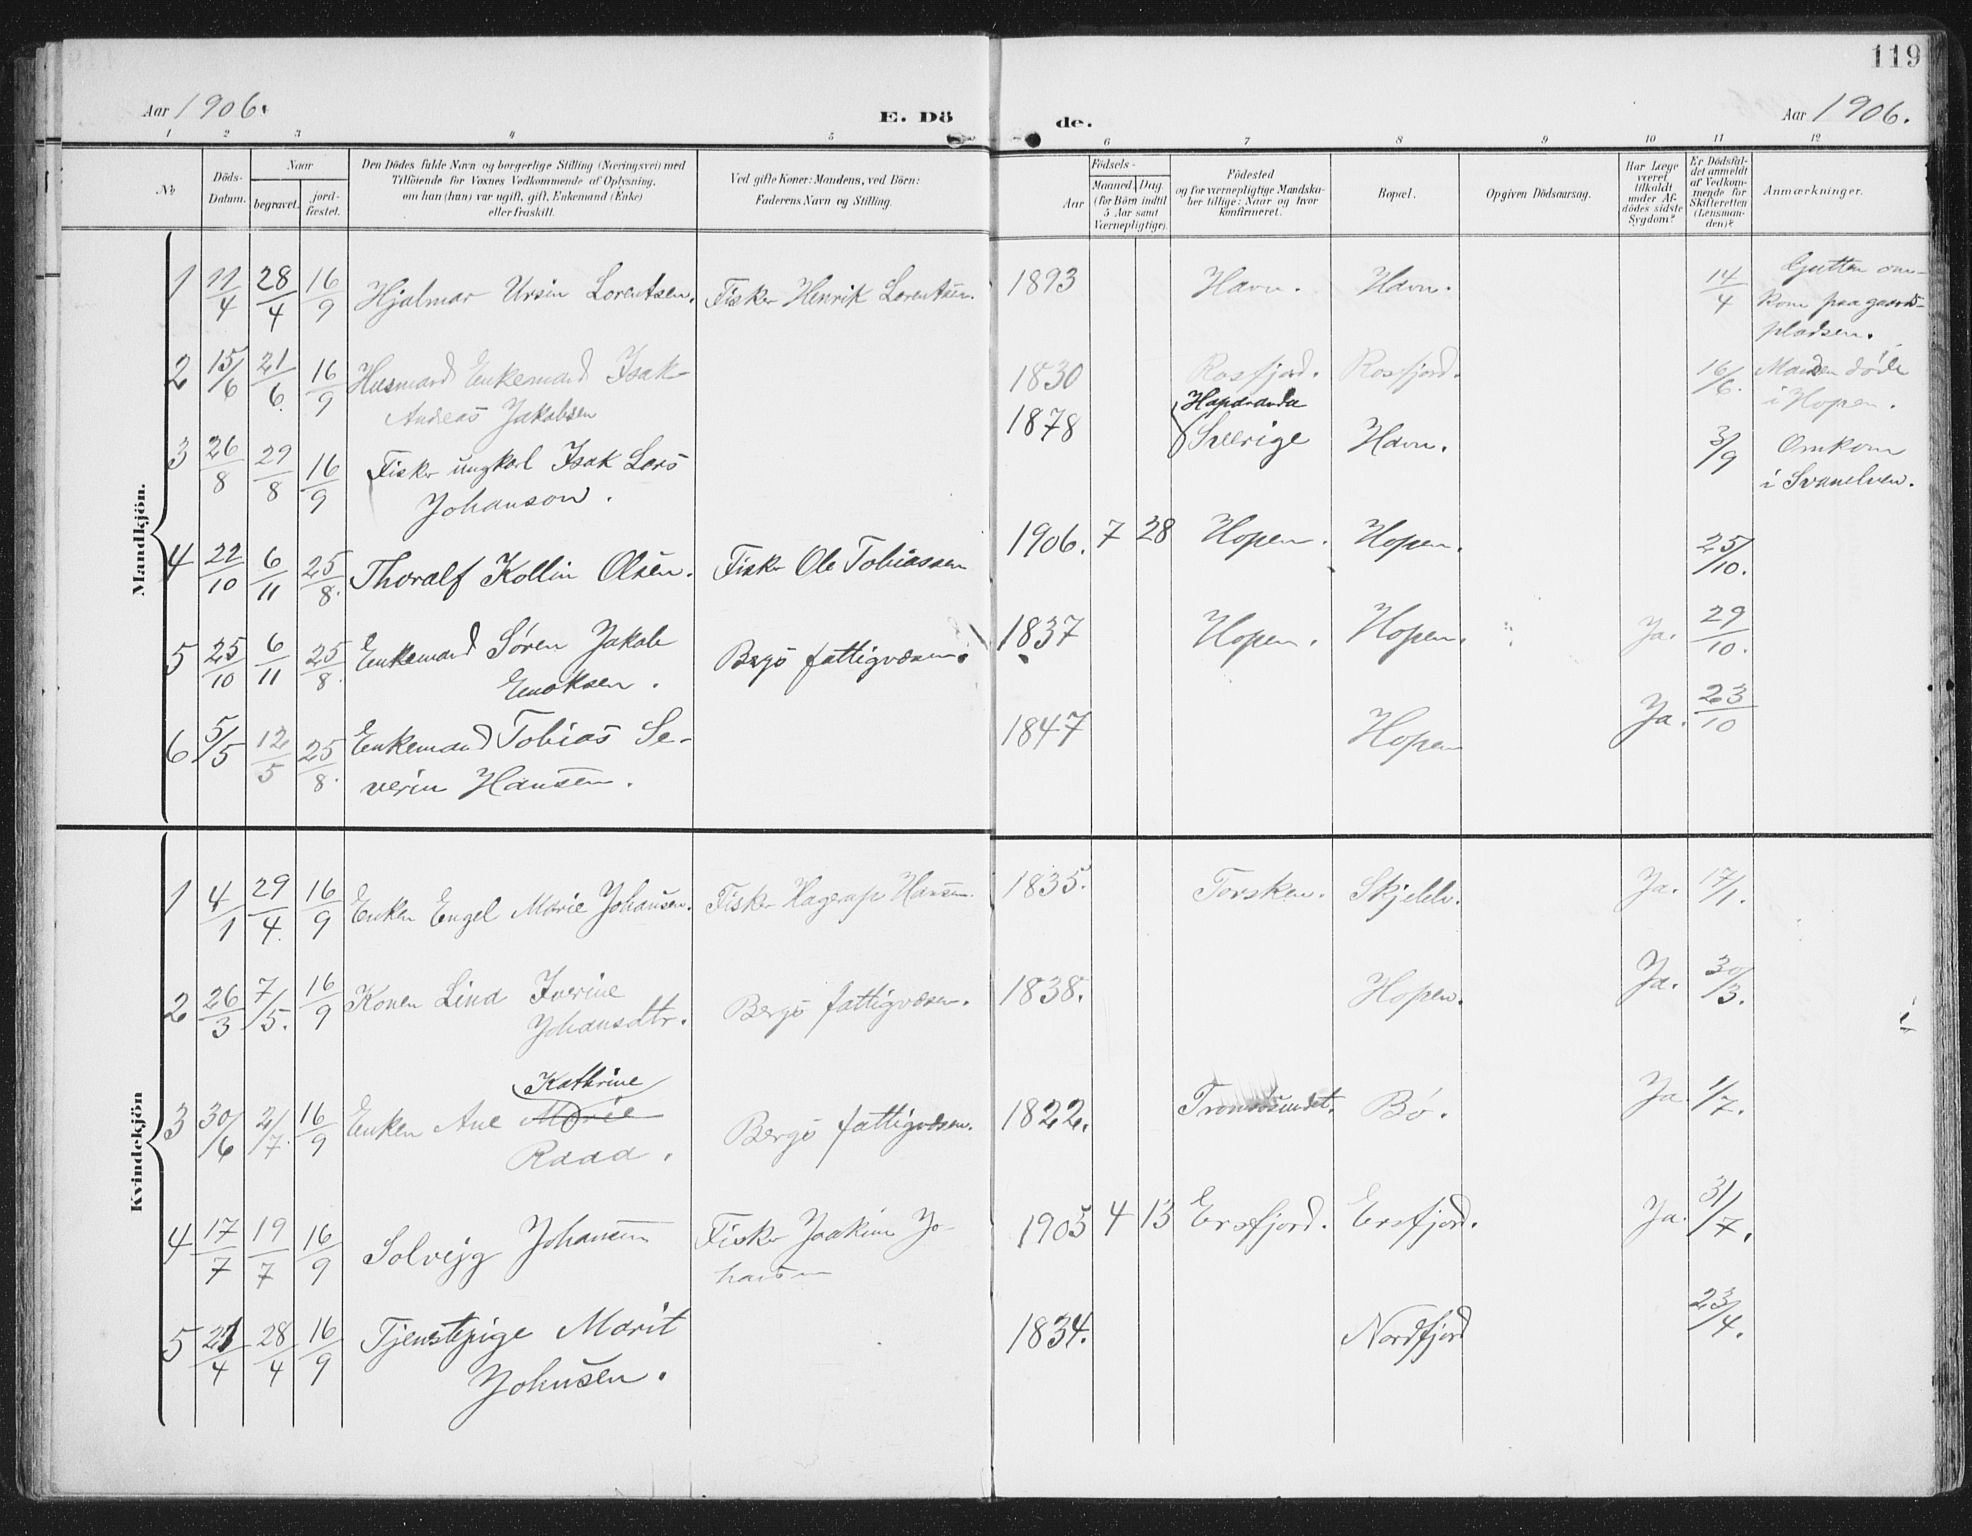 119
Aar 1906. E. Dö de. Aar 1906.
1 2 3 4 5 6 7 8 9 10 11 12
No
Döds-Datum.
Naar
begravet.
jord-fæstet.
Den Dödes fulde Navn og borgerlige Stilling (Næringsvei) med
Tilföiende for Voxnes Vedkommende af Oplysning,
om han (hun) var ugift, gift, Enkemand (Enke)
eller fraskilt.
Ved gifte Koner: Mandens, ved Börn:
Faderens Navn og Stilling.
Födsels-
Aar
Maaned. Dag.
(for Börn indtil
5 Aar samt
Værnepligtige).
Födested
og for værnepligtige Mandska-
ber tillige: Naar og hvor
konfirmeret.
Bopæl.
Opgiven Dödsaarsag.
Har Læge
været
tilkaldt
under Af-
dödes sidste
Sygdom?
Er Dödsfal-
det anmeldt
af Vedkom-
mende for
Skifteretten
(Lensman-
den)?
Anmærkninger.
Mandkjön.
1 11/4 28/4 16/9 Hjalmar Ursin Lorentsen. Fisker Henrik Lorentsen. 1893 Havn. Havn. 14/4 Gutten om-
kom paa gaards-
pladsen.
2 15/6 21/6 16/9 Husmand Enkemand Isak
Andreas Jakobsen 1830 Rosfjord. Rosfjord. 16/6. Manden døde
i Hopen.
3 26/8 29/8 16/9 Fisker ungkarl Isak Lars
Johanson. 1878 Haparanda
Sverige Havn. 3/9 Omkom
i Svanelven.
4 22/10 6/11 25/8. Thoralf Kollin Olsen. Fisker Ole Tobiassen 1906. 7 28 Hopen. Hopen. 25/10.
5 25/10 6/11 25/8. Enkemand Søren Jakob
Enoksen. Bergs fattigvæsen. 1837 Hopen. Hopen. Ja. 29/10.
6 5/5 12/5 25/8. Enkemand Tobias Se-
verin Hansen. 1847 Hopen Ja. 23/10
Kvindekjön
1 4/1 29/4. 16/9 Enken Engel Marie Johansen. Fisker Hagerup Hansen. 1835. Torsken. Skjeldv. Ja. 17/1.
2 26/3 7/5. 16/9 Konen Lina Iverine
Johansdtr. Bergs fattigvæsen. 1838. Hopen. Ja. 30/3.
3 30/6 2/7. 16/9 Enken Ane Marie Kathrine
Raaa. Bergs fattigvæsen. 1822. Tromsøsundet. Bø. Ja 1/7.
4 17/7 19/7 16/9 Solveig Johansen Fisker Joakim Jo-
hansen 1905 4 13 Ersfjord. Ersfjord. Ja. 31/7.
5 21/4 28/4 16/9 Tjenstepige Marit
Johnsen. 1834. Nordfjord 23/4.